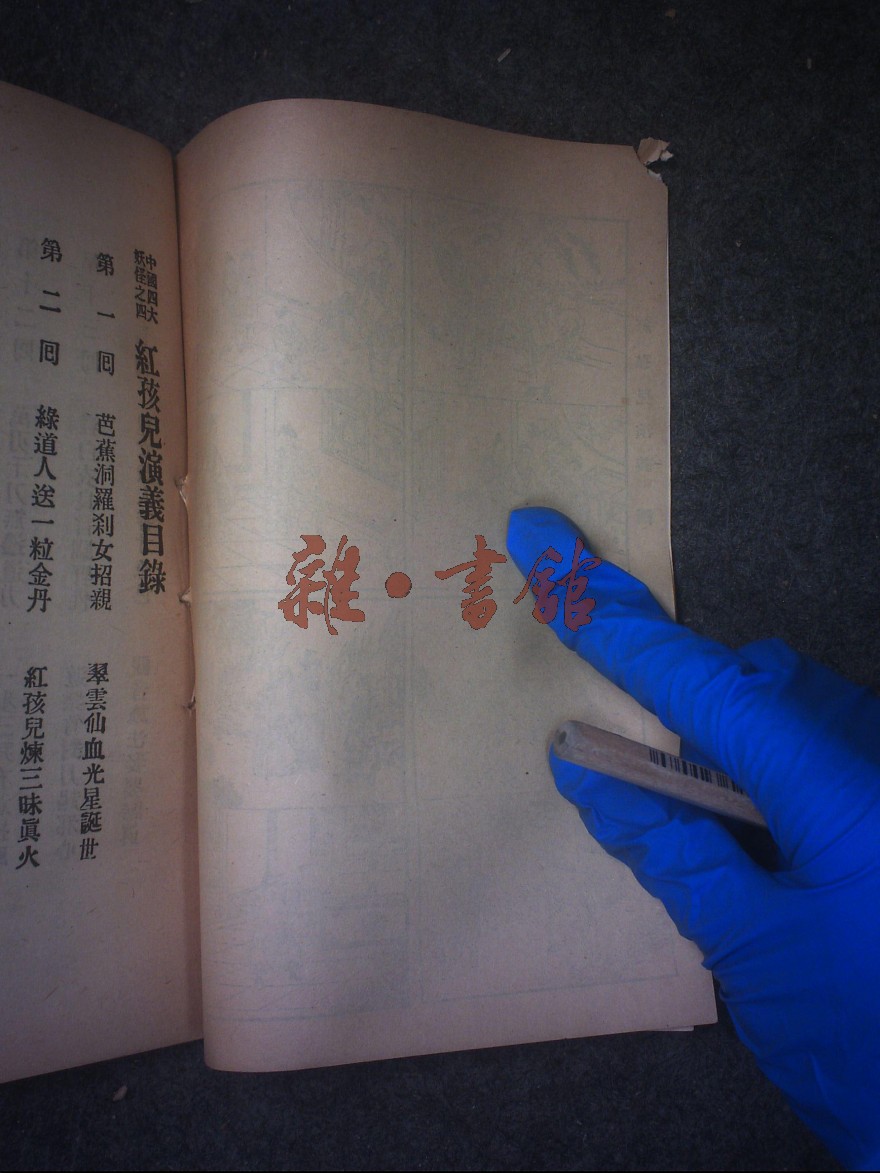 中國四大
妖怪之四
紅孩兒演義目錄
第一囘 芭蕉洞羅刹女招親 翠雲仙血光星誕世
第二囘 綠道人送一粒金丹 紅孩兒煉三昧眞火
雜·書館